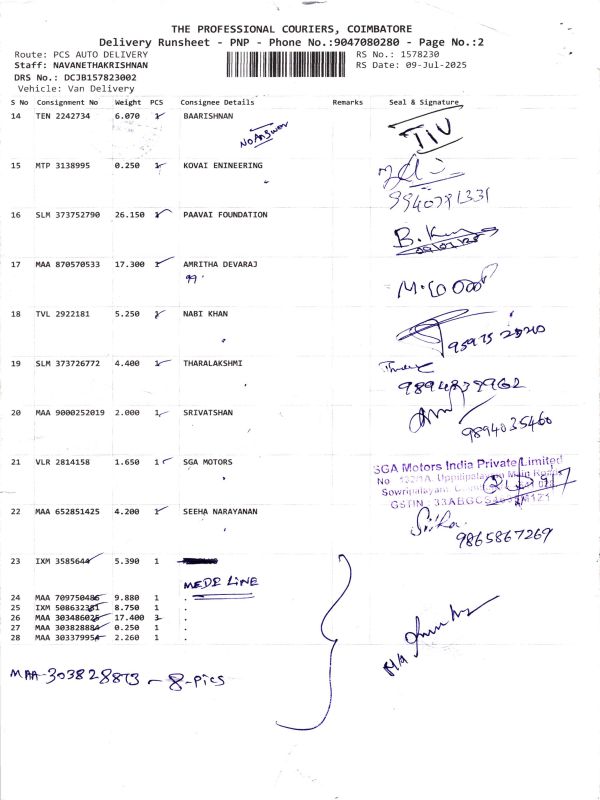 THE PROFESSIONAL COURIERS, COIMBATORE
Delivery Runsheet - PNP - Phone No.:9047080280 - Page No.:2
Route: PCS AUTO DELIVERY RS No.: 1578230
Staff: NAVANETHAKRISHNAN RS Date: 09-Jul-2025
DRS No.: DCJB157823002
Vehicle: Van Delivery
S No Consignment No Weight PCS Consignee Details Remarks Seal & Signature
14 TEN 2242734 6.070 1 BAARISHNAN
No Answer
TIV
15 MTP 3138995 0.250 1 KOVAI ENINEERING
9940791331
16 SLM 373752790 26.150 PAAVAI FOUNDATION
B. Kum
17 MAA 870570533 17.300 AMRITHA DEVARAJ
99
18 TVL 2922181 5.250 NABI KHAN
19 SLM 373726772 4.400 1 THARALAKSHMI
20 MAA 9000252019 2.000 1 SRIVATSHAN
9894035460
21 VLR 2814158 1.650 1 SGA MOTORS
SGA Motors India Private Limited
22 MAA 652851425 4.200 SEEHA NARAYANAN
9865867269
23 IXM 3585644 5.390 1
MEDE LINE
24 MAA 709750486 9.880 1 .
25 IXM 508632381 8.750 1 .
26 MAA 303486025 17.400 .
27 MAA 303828884 0.250 1 .
28 MAA 303379954 2.260 1 .
MAA-303828873 - 8-pics